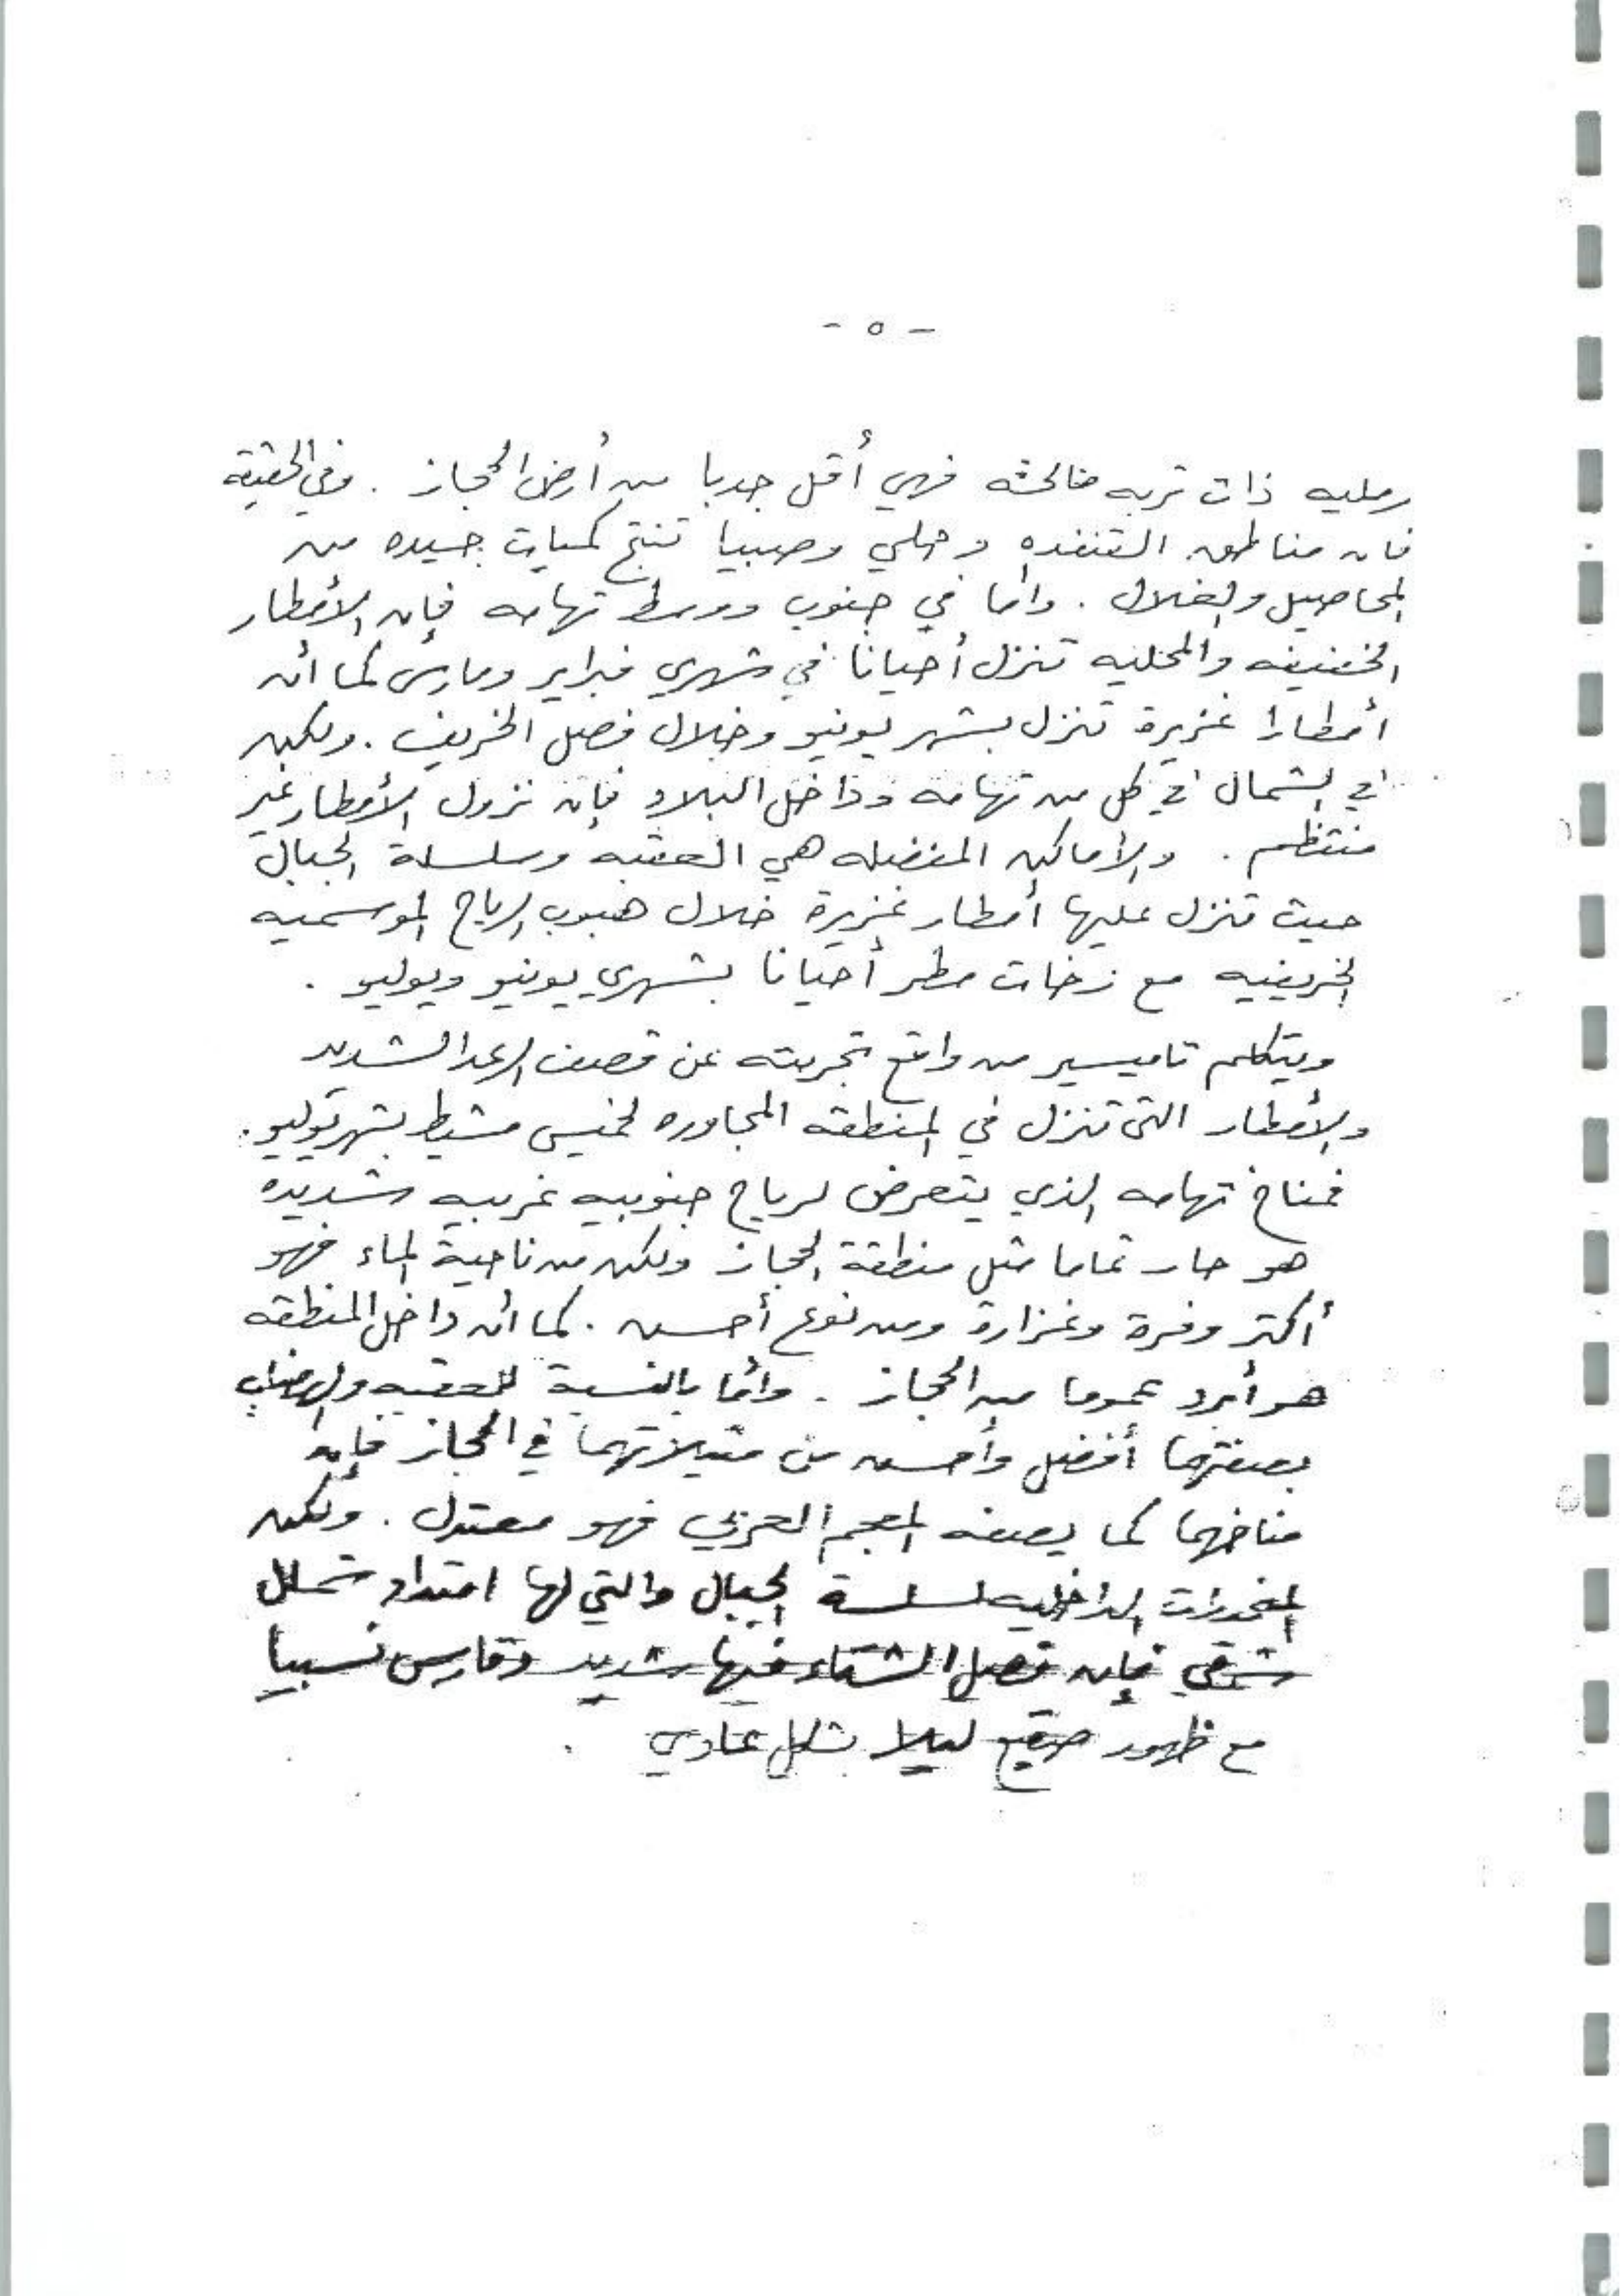 - ٥ -
رمليه ذات تربه ضالحثه فهي أقل جدبا من أرض الحجاز . وفي الحقيقة
فان مناطق القنفذه وحلي وصبيا تنتج كميات جيده من
المحاصيل والغلال . وأما في جنوب ووسط تهامه فإن الأمطار
الخفيفه والمحليه تنزل أحيانا في شهري فبراير ومارس كما أن
أمطارا غزيرة تنزل بشهر يونيو وخلال فصل الخريف . ولكن
في الشمال في كل من تهامه وداخل البلاد فإن نزول الأمطار غير
منتظم . والأماكن المفضله هي العقبه وسلسلة الجبال
حيث تنزل عليها أمطار غزيرة خلال هبوب الرياح الموسميه
الخريفيه مع زخات مطر أحيانا بشهري يونيو ويوليو .
ويتكلم تاميسير من واقع تجربته عن قصف الرعد الشديد
والأمطار التى تنزل في المنطقه المجاوره لخميس مشيط بشهر يوليو .
فمناخ تهامه الذي يتعرض لرياح جنوبيه غربيه شديده
هو حار تماما مثل منطقة الحجاز ولكن من ناحية الماء فهو
أكثر وفرة وغزارة ومن نوع أحسن . كما أن داخل المنطقه
هو أبرد عموما من الحجاز . وأما بالنسبة للعقبه والهضاب
بصفتها أفضل وأحسن من مثيلاتهما في الحجاز فإن
مناخهما كما يصفه المعجم العربي فهو معتدل . ولكن
المنحدرات الداخليه لسلسة الجبال والتي لها امتداد شمال
شرقي فإن فصل الشتاء فيها شديد وقارس نسبيا
مع ظهور صقيع ليلا بشكل عادي .